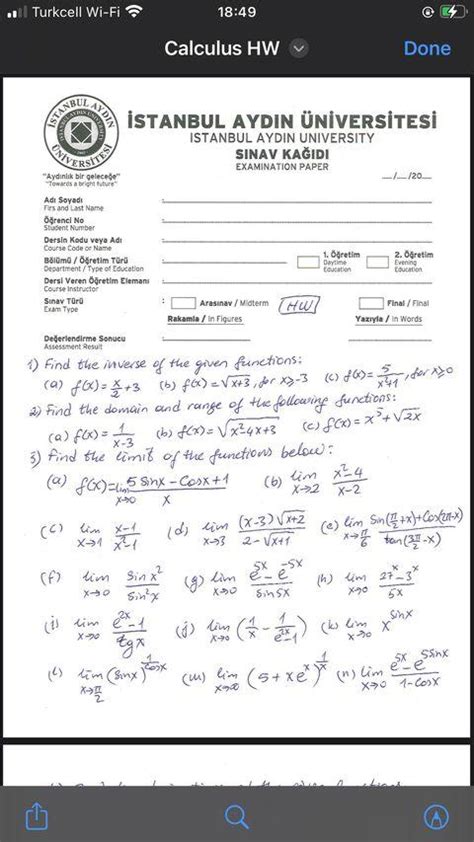 Turkcell Wi-Fi 18:49
Calculus HW Done
İSTANBUL AYDIN ÜNİVERSİTESİ
İSTANBUL AYDIN ÜNİVERSİTESİ
ISTANBUL AYDIN UNIVERSITY
SINAV KAĞIDI
EXAMINATION PAPER
"Aydınlık bir geleceğe"
"Towards a bright future"
__/__/20__
Adı Soyadı :
Firs and Last Name
Öğrenci No :
Student Number
Dersin Kodu veya Adı :
Course Code or Name
Bölümü / Öğretim Türü : 1. Öğretim 2. Öğretim
Department / Type of Education Daytime Education Evening Education
Dersi Veren Öğretim Elemanı :
Course Instructor
Sınav Türü : Arasınav / Midterm HW Final / Final
Exam Type
Rakamla / In Figures Yazıyla / In Words
Değerlendirme Sonucu
Assessment Result
1) Find the inverse of the given functions:
(a) f(x)=x/2+3 (b) f(x)=√(x+3), for x≥-3 (c) f(x)=5/(x²+1), for x≥0
2) Find the domain and range of the following functions:
(a) f(x)=1/(x-3) (b) f(x)=√(x²-4x+3) (c) f(x)=x⁵+√(2x)
3) Find the limit of the functions below:
(a) f(x)=lim x→0 (5 sinx-cosx+1)/x (b) lim x→2 (x²-4)/(x-2)
(c) lim x→1 (x-1)/(x²-1) (d) lim x→3 (x-3)√(x+2)/(2-√(x+1)) (e) lim x→π/6 (sin(π/2+x)+cos(2π-x))/tan(3π/2-x)
(f) lim x→0 sinx²/sin²x (g) lim x→0 (e^5x-e^-5x)/sin5x (h) lim x→0 (27^x-3^x)/5x
(i) lim x→0 (e^2x-1)/tgx (j) lim x→0 (1/x-1/(e^2x-1)) (k) lim x→0 x^sinx
(l) lim x→π/2 (sinx)^(1/cosx) (m) lim x→∞ (5+xe^x)^(1/x) (n) lim x→0 (e^5x-e^5sinx)/(1-cosx)